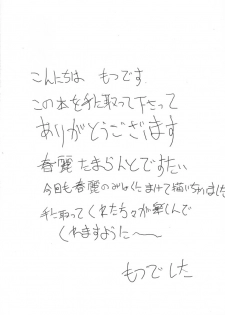 こんにちは もつです
この本を手に取って下さって
ありがとうございます
春麗たまらんとですたい
今回も春麗のみりょくにまけて描いちゃいました
手に取ってくれた方々が楽しんで
くれますように〜〜
もつでした